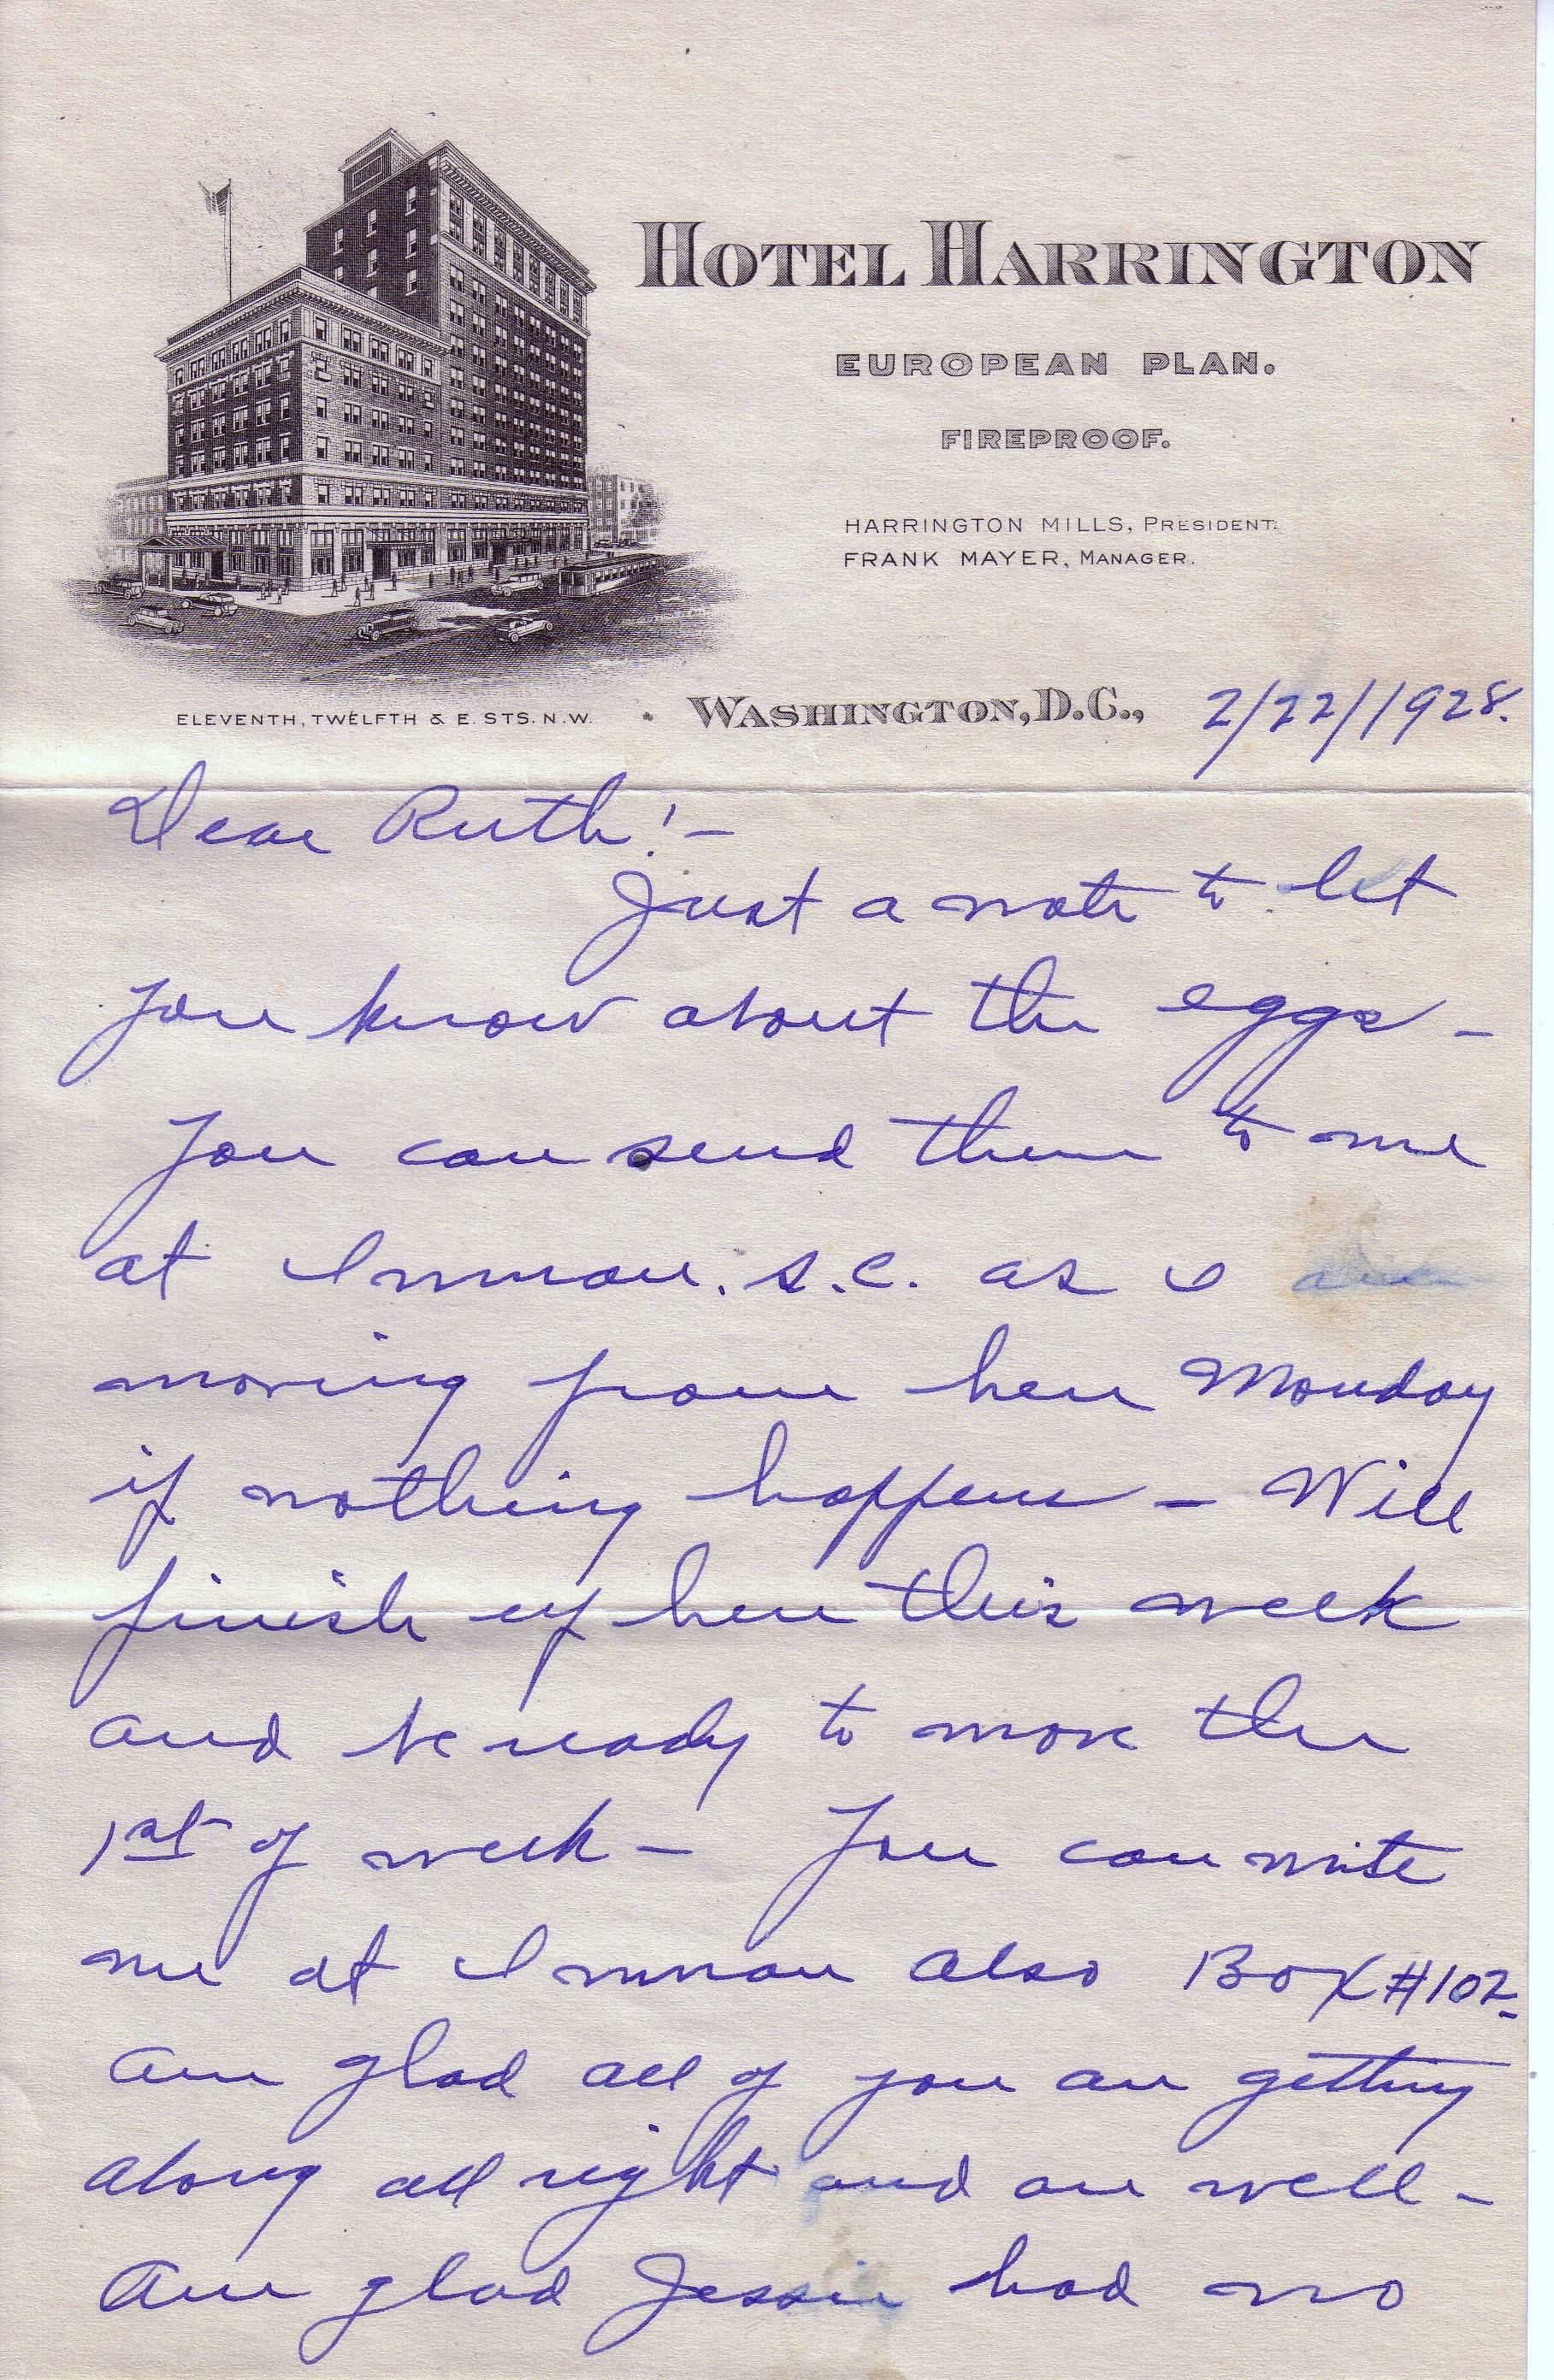 HOTEL HARRINGTON
EUROPEAN PLAN.
FIREPROOF.
HARRINGTON MILLS, PRESIDENT.
FRANK MAYER, MANAGER.
ELEVENTH, TWELFTH & E. STS. N.W.
WASHINGTON, D.C., 2/22/1928.
Dear Ruth!-
Just a note to let
you know about the eggs -
You can send them to me
at Inman. S.C. as I am
moving from here Monday
if nothing happens - Will
finish up here this week
and be ready to move the
1st of week - You can write
me at Inman also Box #102-
Am glad all of you are getting
along all right and are well -
Am glad Jessie had no